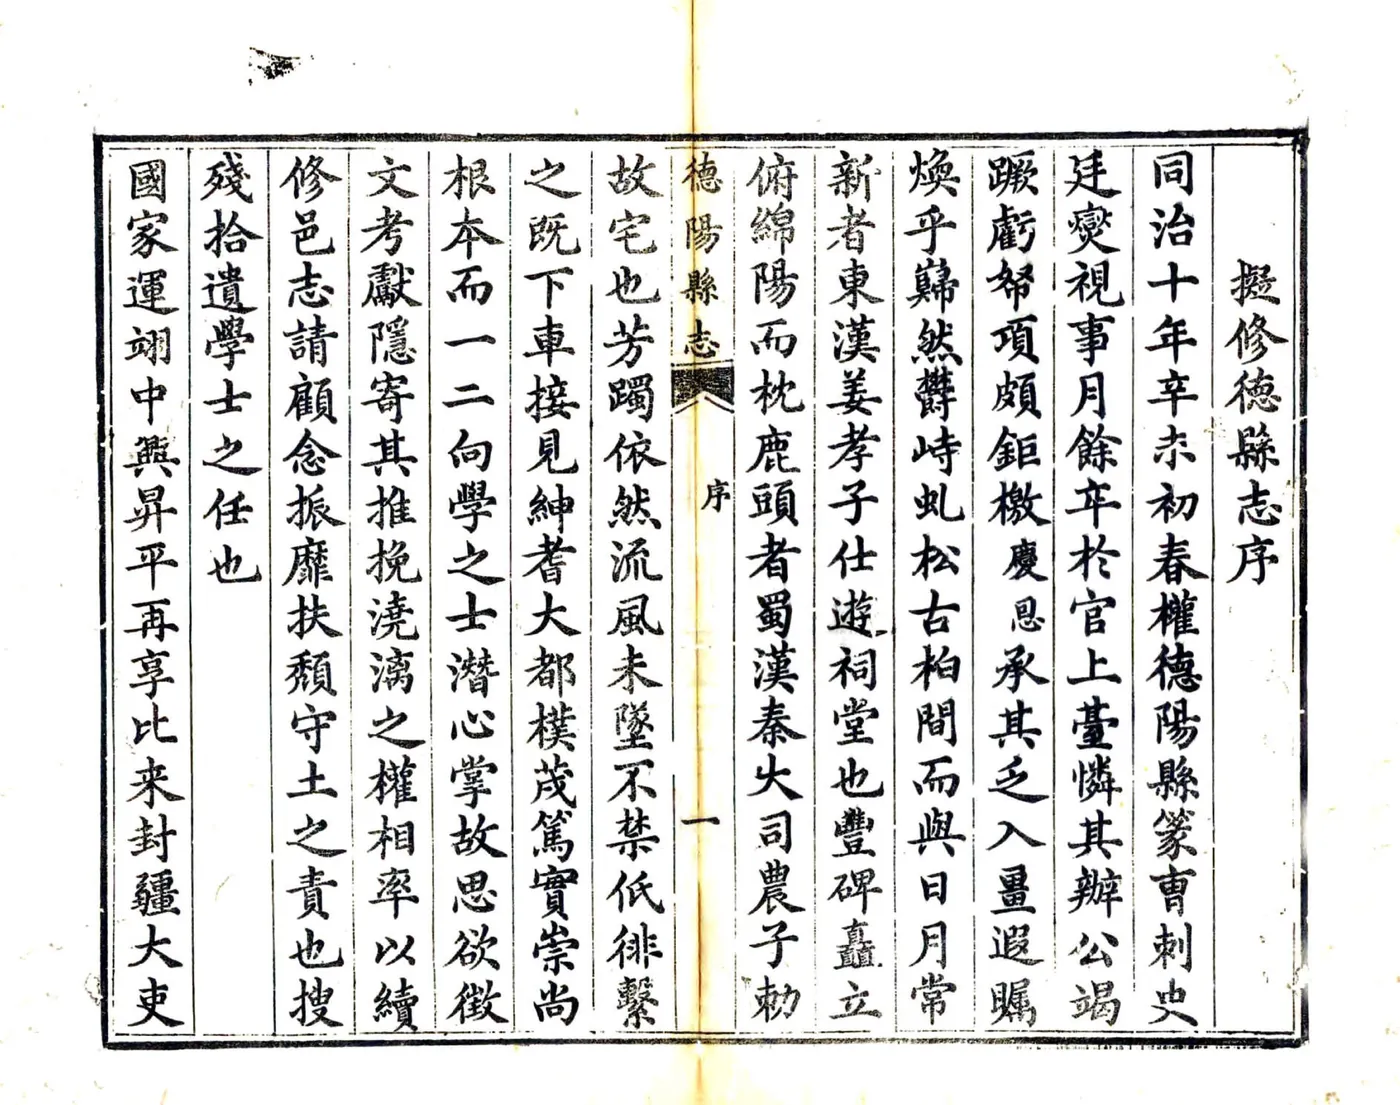 擬修德縣志序
同治十年辛未初春權德陽縣篆曹刺史
廷燮視事月餘卒於官上臺憐其辦公竭
蹶虧帑項頗鉅檄慶恩承其乏入畺遐矚
煥乎巋然欝峙虬松古柏間而與日月常
新者東漢姜孝子仕遊祠堂也豐碑矗立
俯綿陽而枕鹿頭者蜀漢秦大司農子勅
德陽縣志
序
一
故宅也芳躅依然流風未墜不禁低徘繫
之既下車接見紳耆大都樸茂篤實崇尚
根本而一二向學之士潛心掌故思欲徵
文考獻隱寄其推挽澆漓之權相率以續
修邑志請顧念振靡扶頹守土之責也搜
殘拾遺學士之任也
國家運翊中興昇平再享比来封疆大吏